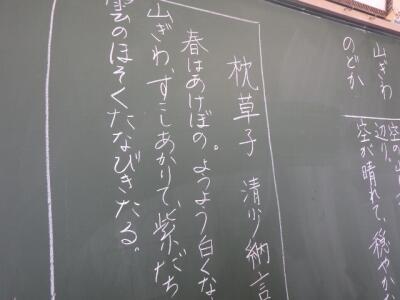 山ぎわ
空の山に
辺り。
のどか
空が晴れて、穏やかな
枕草子 清少納言
春はあけぼの。ようよう白くな
山ぎわ、すこしあかりて、紫だち
雲のほそくたなびきたる。